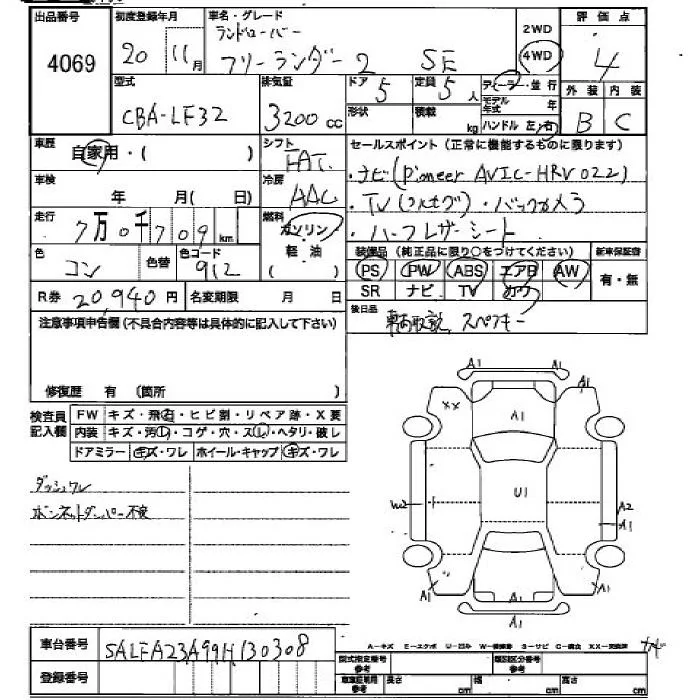 出品番号 初度登録年月 車名・グレード 評価点
4069 20 11月 ランドローバー フリーランダー2 SE 2WD 4WD 4
型式 排気量 ドア 5 定員 5人 ディーラー・並行 外装 内装
CBA-LF32 3200cc 形状 積載 kg モデル年式 年 ハンドル 左・右 B C
車歴 自家用・( ) シフト FAT セールスポイント(正常に機能するものに限ります)
車検 年 月(日) 冷房 AAC ・ナビ(Pioneer AVIC-HRV022)
走行 7万0千709km 燃料 ガソリン ・TV(フルセグ)・バックカメラ
軽油 ・ハーフレザーシート
色 コン 色替 色コード 912 装備品(純正品に限り○をつけてください) 新車保証書
PS PW ABS エアB AW 有・無
R券 20,940円 名変期限 月 日 SR ナビ TV カワ
注意事項申告欄(不具合内容等は具体的に記入して下さい) 後日品 スペアキー
修復歴 有 (箇所 )
検査員記入欄 FW キズ・飛石・ヒビ割・リペア跡・X要
内装 キズ・汚レ・コゲ・穴・スレ・ヘタリ・破レ
ドアミラー キズ・ワレ ホイール・キャップ キズ・ワレ
ダッシュワレ
ボンネットダンパー不良
A1
A1
XX A1
U1
W2 A2
A1
A1 A1
A1
車台番号 SALFA23A99H130308
登録番号
A-キズ E-エクボ U-凹み W-補修跡 S-サビ C-腐食 XX-交換済
型式指定番号 参考 類別区分番号 参考
車庫証明用 参考 長さ cm 幅 cm 高さ cm